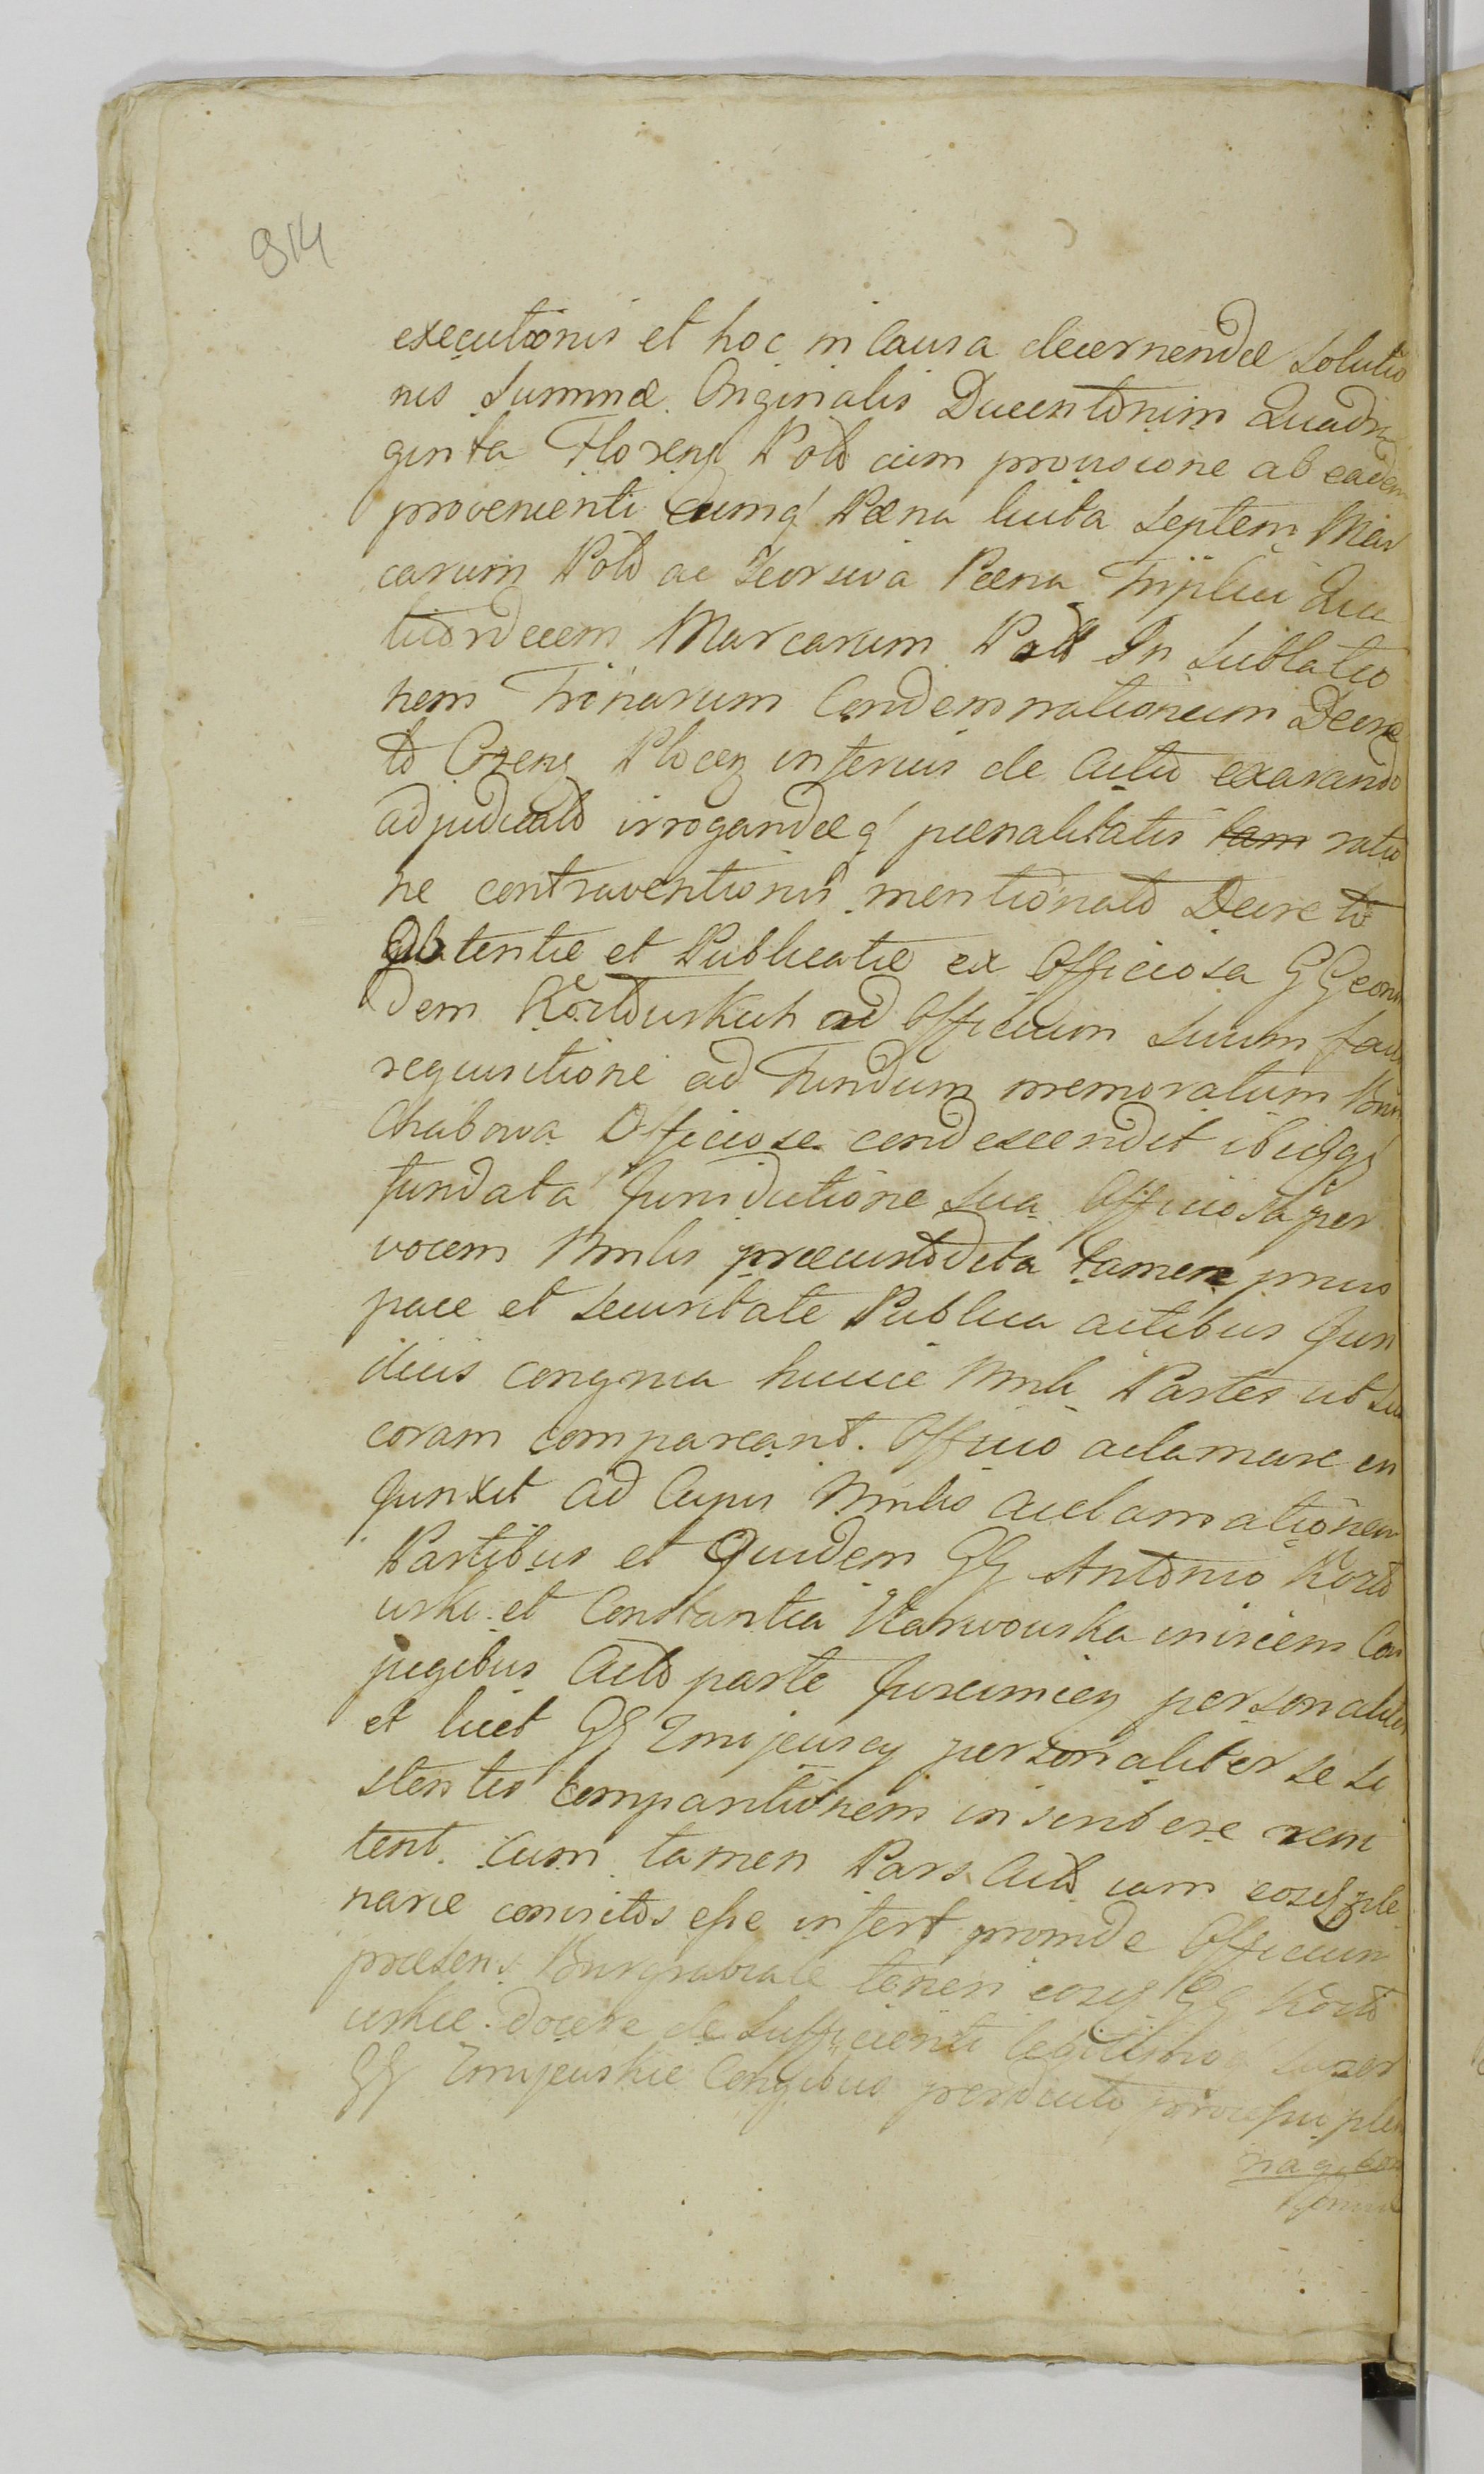 914
executionis et hoc in Causa decernendæ Solutio
nis Summæ Originalis Ducentorum Quadra
ginta Floreng Polo cum provisione ab eadem
provenienti Cumq Pæna luita Septem Mar
carum Polo ac Seorsiva Pæna Triplici Qua
tuordecem Marcarum Pol In Sublatio
nem Trinarum Condemnationum Decre
to Czeng Plocen inferius de Actu exarando
adjudicato irrogandæq pænalitatis tam ratio
ne contraventionis mentionato Decreto
Obtentæ et Publicatæ ex Officiosa GG eorun
dem Kozłowskich ad Officium Suum facta
requisitione ad Fundum memoratum Bonor
Chabowa Officiose condescendit ibidqs
fundata Jurisdictione Sua Officiosa per
vocem Mnlis præcustodita tamen prius
pace et Securitate Publica actibus Juri
dicis congrua huicce Mnli Partes ut Sui
coram compareant Officio aclamare in
junxit ad Cujus Mnlis aclamationem
Partibus et Quidem GG Antonio Kozło
wski et Constantia Karwowska invicem Con
jugibus Acto parte Juximien personaliter
et licet GG Zmijewscy personaliter se si
stentes Comparitionem inscribere reni
tent cum tamen Pars Acto iam eosd ple
narie convictos esse infert proinde Officium
præsens Burgrabiale teneri eosd GG Kozło
wskie docere de Sufficienti legitimoq Super
GG Zmijewskie Conjgibus perducto processu ple
naq con